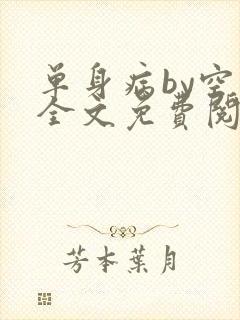 单身病by空
全文免費閱
芳本葉月